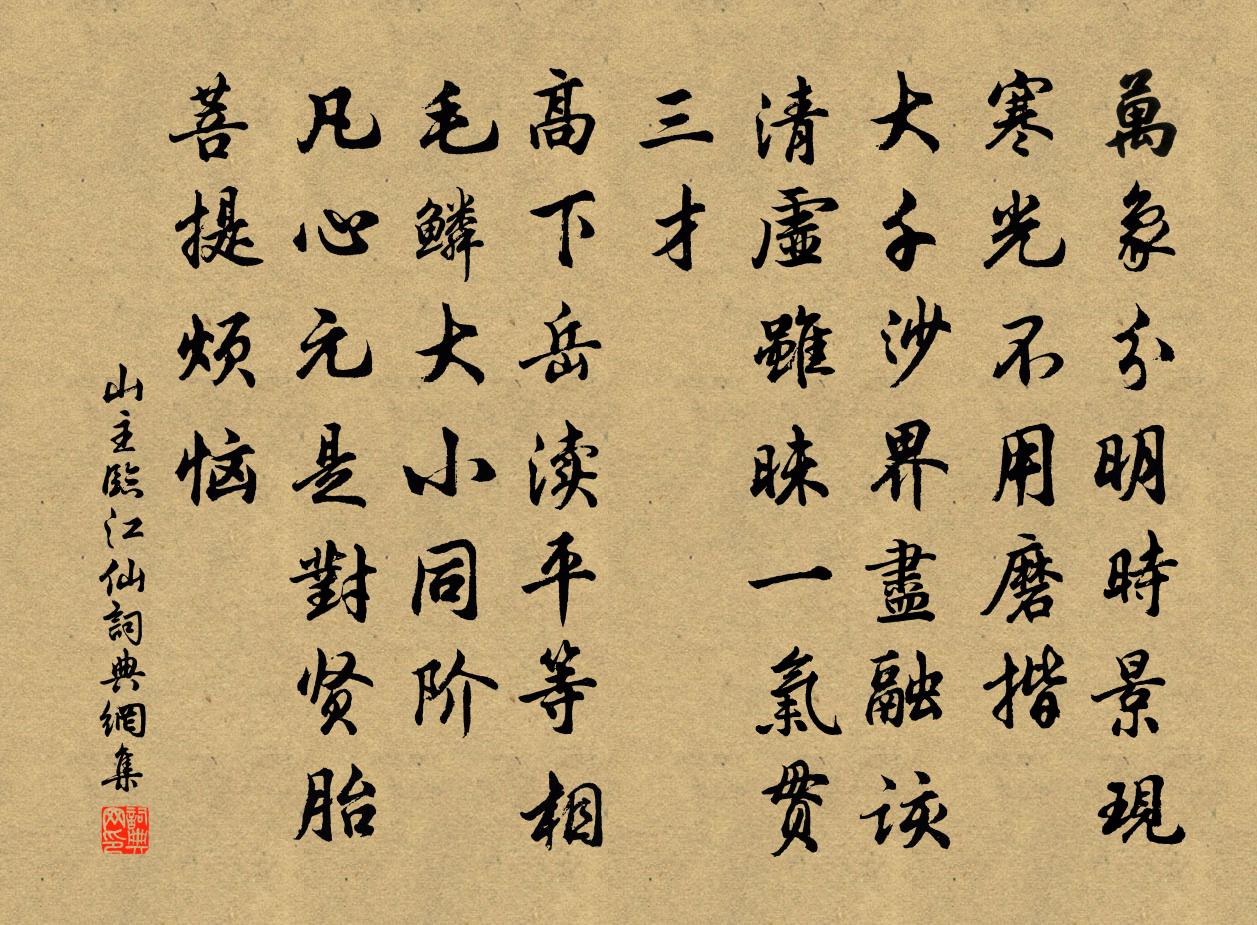 萬象分明時景現
寒光不用磨揩
大千沙界盡融該
清虛雖昧一氣貫
三才
高下岳渎平等相
毛鱗大小同阶
凡心元是對贤胎
菩提烦恼
山主臨江仙詞典網集
詞典网印